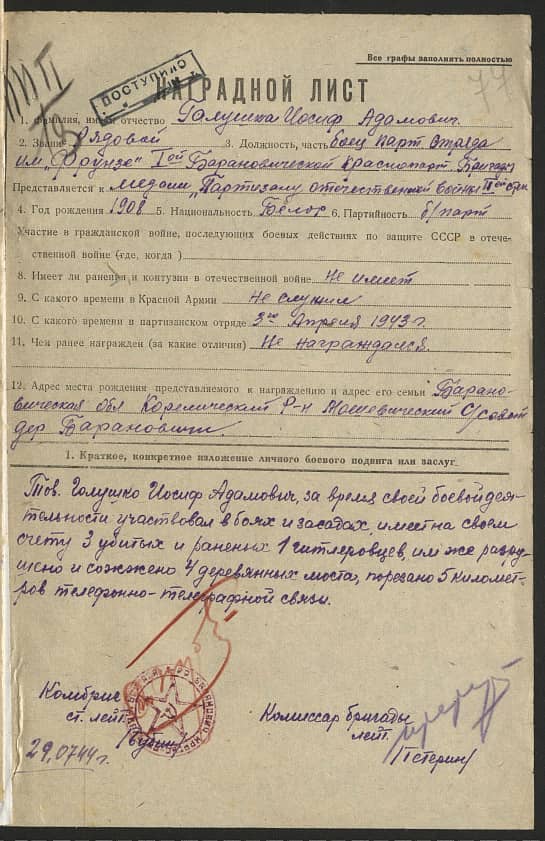 Все графы заполнять полностью
77
ПОСТУПИЛО
НАГРАДНОЙ ЛИСТ
1. Фамилия, имя и отчество Галушко Иосиф Адамович.
2. Звание Рядовой 3. Должность, часть боец парт. отряда
им. „Фрунзе" 1ой Барановической Краснопарт. Бригады
Представляется к медали „Партизану отечественной войны IIой степ
4. Год рождения 1908 5. Национальность Белор 6. Партийность б/парт
Участие в гражданской войне, последующих боевых действиях по защите СССР в отече-
ственной войне (где, когда)
8. Имеет ли ранения и контузии в отечественной войне Не имеет
9. С какого времени в Красной Армии Не служил
10. С какого времени в партизанском отряде 3го Апреля 1943 г.
11. Чем ранее награжден (за какие отличия) Не награждался.
12. Адрес места рождения представляемого к награждению и адрес его семьи Барано-
вическая обл Кореличский Р-н Мошевический С/совет
дер Барановичи.
1. Краткое, конкретное изложение личного боевого подвига или заслуг
Тов. Голушко Иосиф Адамович, за время своей боевой дея-
тельности участвовал в боях и засадах, имеет на своем
счету 3 убитых и раненых 1 гитлеровцев, им же разру-
шено и сожжено 4 деревянных моста, порезано 5 километ-
ров телефонно-телеграфной связи.
Комбриг
ст. лейт.
29.07.44 г.
Комиссар бригады
лейт.
/Петерин/